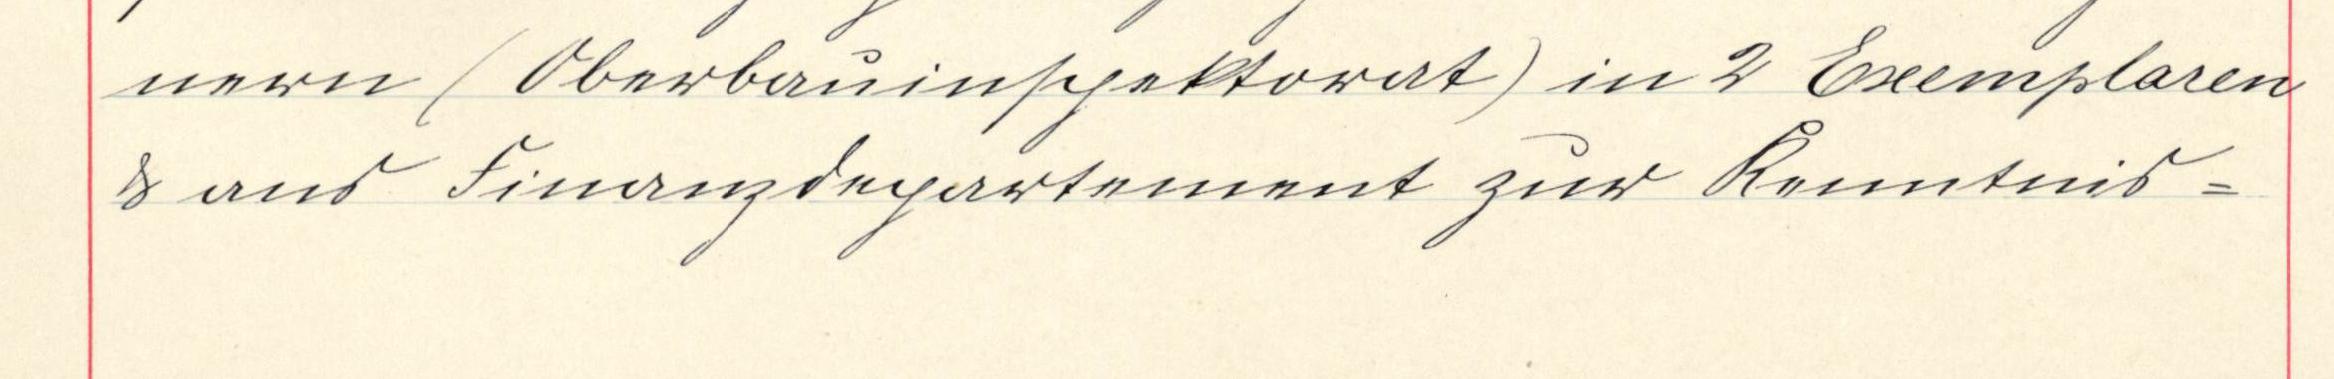 nern (Oberbauinspektorat) in 2 Exemplaren
& ans Finanzdepartement zur Kenntnis=